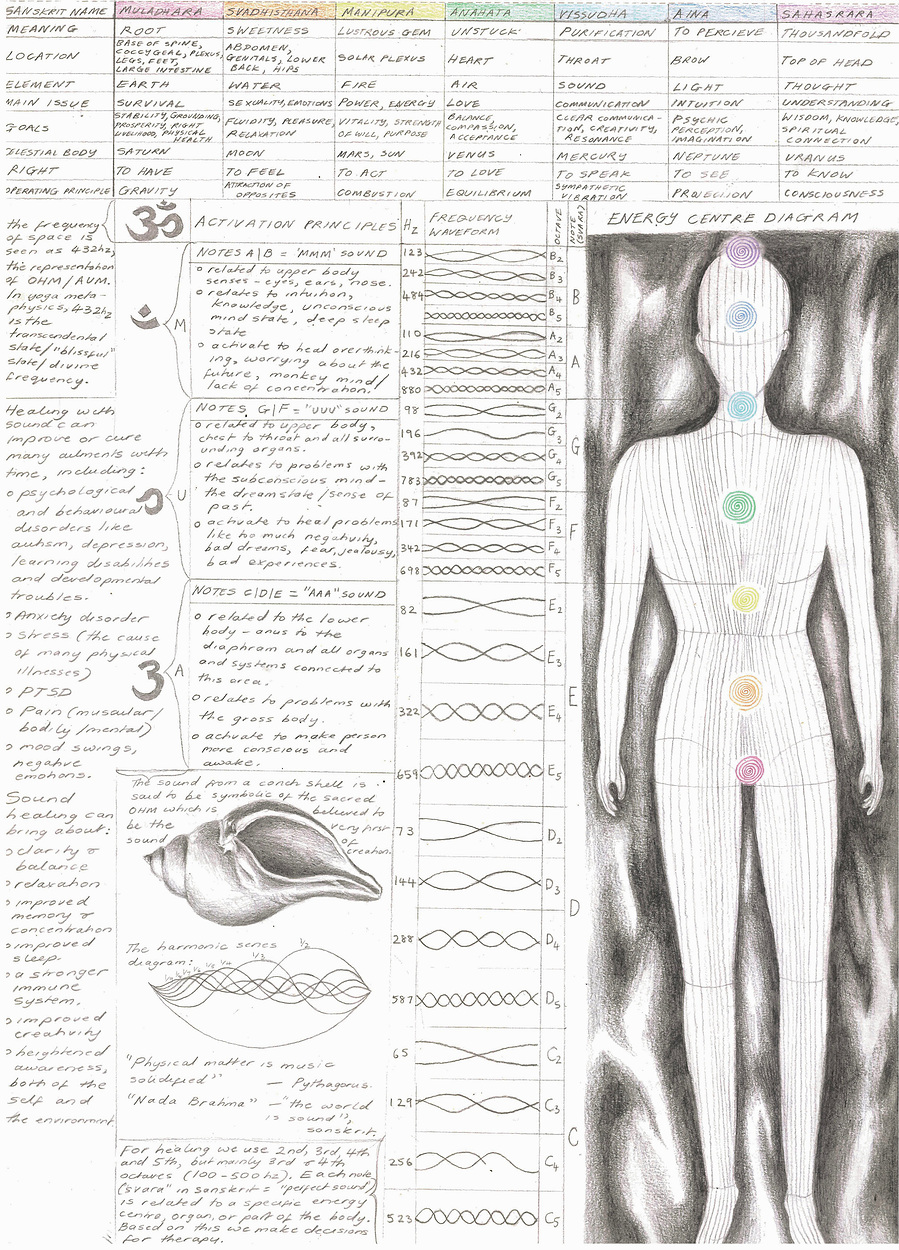 SANSKRIT NAME MULADHARA SVADHISTHANA MANIPURA ANAHATA VISSUDHA AJNA SAHASRARA
MEANING ROOT SWEETNESS LUSTROUS GEM UNSTUCK PURIFICATION TO PERCIEVE THOUSANDFOLD
LOCATION
BASE OF SPINE,
COCCYGEAL, PLEXUS,
LEGS, FEET,
LARGE INTESTINE
ABDOMEN,
GENITALS, LOWER
BACK, HIPS
SOLAR PLEXUS
HEART
THROAT
BROW
TOP OF HEAD
ELEMENT EARTH WATER FIRE AIR SOUND LIGHT THOUGHT
MAIN ISSUE SURVIVAL SEXUALITY, EMOTIONS POWER, ENERGY LOVE COMMUNICATION INTUITION UNDERSTANDING
GOALS
STABILITY, GROUNDING,
PROSPERITY, RIGHT
LIVELIHOOD, PHYSICAL
HEALTH
FLUIDITY, PLEASURE,
RELAXATION
VITALITY, STRENGTH
OF WILL, PURPOSE
BALANCE,
COMPASSION,
ACCEPTANCE
CLEAR COMMUNICA-
TION, CREATIVITY,
RESONANCE
PSYCHIC
PERCEPTION,
IMAGINATION
WISDOM, KNOWLEDGE,
SPIRITUAL
CONNECTION
CELESTIAL BODY SATURN MOON MARS, SUN VENUS MERCURY NEPTUNE URANUS
RIGHT TO HAVE TO FEEL TO ACT TO LOVE TO SPEAK TO SEE TO KNOW
OPERATING PRINCIPLE GRAVITY
ATTRACTION OF
OPPOSITES
COMBUSTION EQUILIBRIUM
SYMPATHETIC
VIBRATION
PROJECTION CONSCIOUSNESS
the frequency
of space is
seen as 432hz,
the representation
of OHM/AUM.
In yoga meta-
physics, 432hz
is the
transcendental
state/"blissful"
state/divine
frequency.
Healing with
sound can
improve or cure
many ailments with
time, including:
o psychological
and behavioural
disorders like
autism, depression,
learning disabilities
and developmental
troubles.
o Anxiety disorder
o stress (the cause
of many physical
illnesses)
o PTSD
o Pain (muscular/
bodily/mental)
o mood swings,
negative
emotions.
Sound
healing can
bring about:
o clarity &
balance
o relaxation
o improved
memory &
concentration
o improved
sleep.
o a stronger
immune
system.
o improved
creativity
o heightened
awareness,
both of the
self and
the environment
ॐ
ACTIVATION PRINCIPLES
M
NOTES A|B = 'MMM' SOUND
o related to upper body
senses - eyes, ears, nose.
o relates to intuition,
knowledge, unconscious
mind state, deep sleep
state
o activate to heal overthink-
ing, worrying about the
future, monkey mind/
lack of concentration.
U
NOTES G|F = "UUU" SOUND
o related to upper body,
chest to throat and all surro-
unding organs.
o relates to problems with
the subconscious mind -
the dreamstate/sense of
past.
o activate to heal problems
like too much negativity,
bad dreams, fear, jealousy,
bad experiences.
A
NOTES C|D|E = "AAA" SOUND
o related to the lower
body - anus to the
diaphram and all organs
and systems connected to
this area.
o relates to problems with
the gross body.
o activate to make person
more conscious and
awake.
The sound from a conch shell is
said to be symbolic of the sacred
OHM which is believed to
be the very first
sound of
creation.
The harmonic series
diagram:
1/2
1/3
1/4
"Physical matter is music
solidified" — Pythagorus.
"Nada Brahma" — "the world
is sound",
sanskrit.
For healing we use 2nd, 3rd, 4th
and 5th, but mainly 3rd & 4th
octaves (100-500hz). Each note
(svara" in Sanskrit = "perfect sound")
is related to a specific energy
centre, organ, or part of the body.
Based on this we make decisions
for therapy.
Hz
FREQUENCY
WAVEFORM
OCTAVE
NOTE
(SVARA)
123 B2
242 B3
484 B4
B5
B
110 A2
216 A3
432 A4
880 A5
A
98 G2
196 G3
392 G4
783 G5
G
87 F2
171 F3
342 F4
698 F5
F
82 E2
161 E3
322 E4
659 E5
E
73 D2
144 D3
288 D4
587 D5
D
65 C2
129 C3
256 C4
523 C5
C
ENERGY CENTRE DIAGRAM